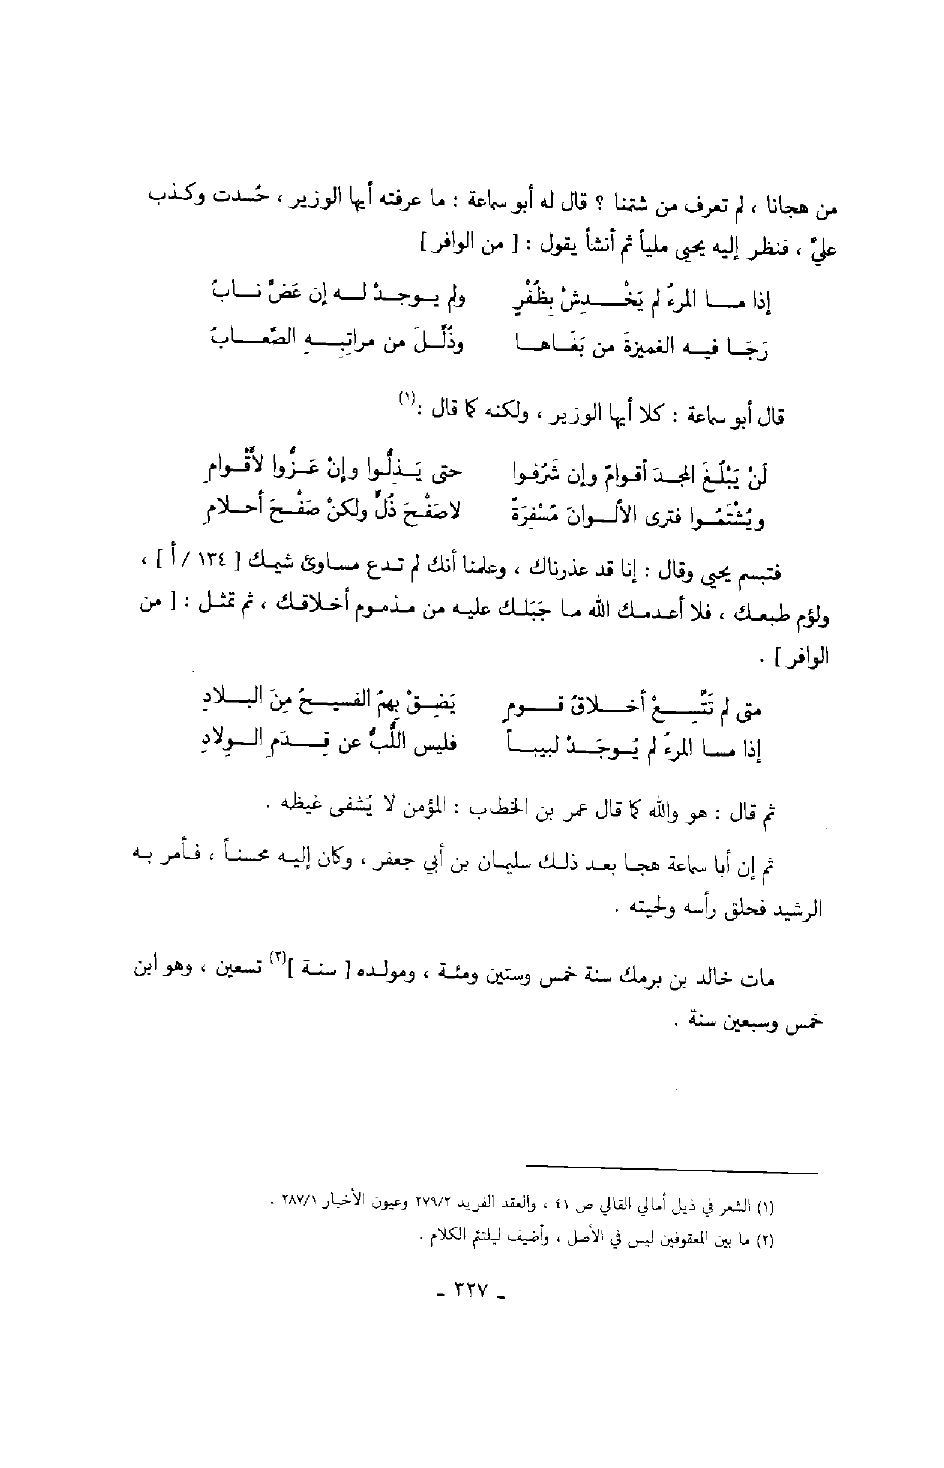 من هجانا ، لم تعرف من شتمنا ؟ قال له أبو سماعة : ما عرفته أيها الوزير ، حُسدت وكذب
عليَّ ، فنظر إليه يحيى ملياً ثم أنشأ يقول : [ من الوافر ]
إذا مـا المرءُ لم يَخْـدِشْ بِظُفْرٍ ولم يـوجـدْ لـه إن عَضَّ نـابُ
رَجَـا فيـه الغميزةَ من بَغَـاهـا وذُلِّـلَ من مراتبِـهِ الصِّعـابُ
قال أبو سماعة : كلا أيها الوزير ، ولكنه كما قال :(١)
لَنْ يَبْلُغَ المجـدَ أقـوامٌ وإن شَرُفـوا حتى يَـذِلُّوا وإنْ عَـزُّوا لأقْـوامِ
ويُشْتَمُـوا فترى الألـوانَ مُسْفِرَةً لاصَفْحَ ذُلٍّ ولكنْ صَفْحَ أحـلامِ
فتبسم يحيى وقال : إنا قد عذرناك ، وعلمنا أنك لم تـدع مسـاوئ شيمـك [ ١٣٤ /أ ] ،
ولؤم طبعـك ، فلا أعدمـك الله مـا جَبَلـك عليـه من مـذمـوم أخـلاقـك ، ثم تمثـل : [ من
الوافر ] .
متى لم تَتَّسِـعْ أخـلاقُ قـومٍ يَضِـقْ بِهمُ الفسيـحُ مِنَ البـلادِ
إذا مـا المرءُ لم يُـوجَـدْ لبيبـاً فليس اللُّبُّ عن قِـدَمِ الـوِلادِ
ثم قال : هو والله كما قال عمر بن الخطب : المؤمن لا يُشفى غيظه .
ثم إن أبا سماعة هجـا بعـد ذلـك سليمان بن أبي جعفر ، وكان إليـه محسنـاً ، فـأمر بـه
الرشيد فحلق رأسه ولحيته .
مات خالد بن برمك سنة خمس وستين ومئـة ، ومولـده [ سنـة ](٢) تسعين ، وهو ابن
خمس وسبعين سنة .
(١) الشعر في ذيل أمالي القالي ص ٤١ ، والعقد الفريد ٢٧٩/٢ وعيون الأخبار ٢٨٧/١ .
(٢) ما بين المعقوفين ليس في الأصل ، وأضيف ليلتئم الكلام .
ـ ٣٢٧ ـ